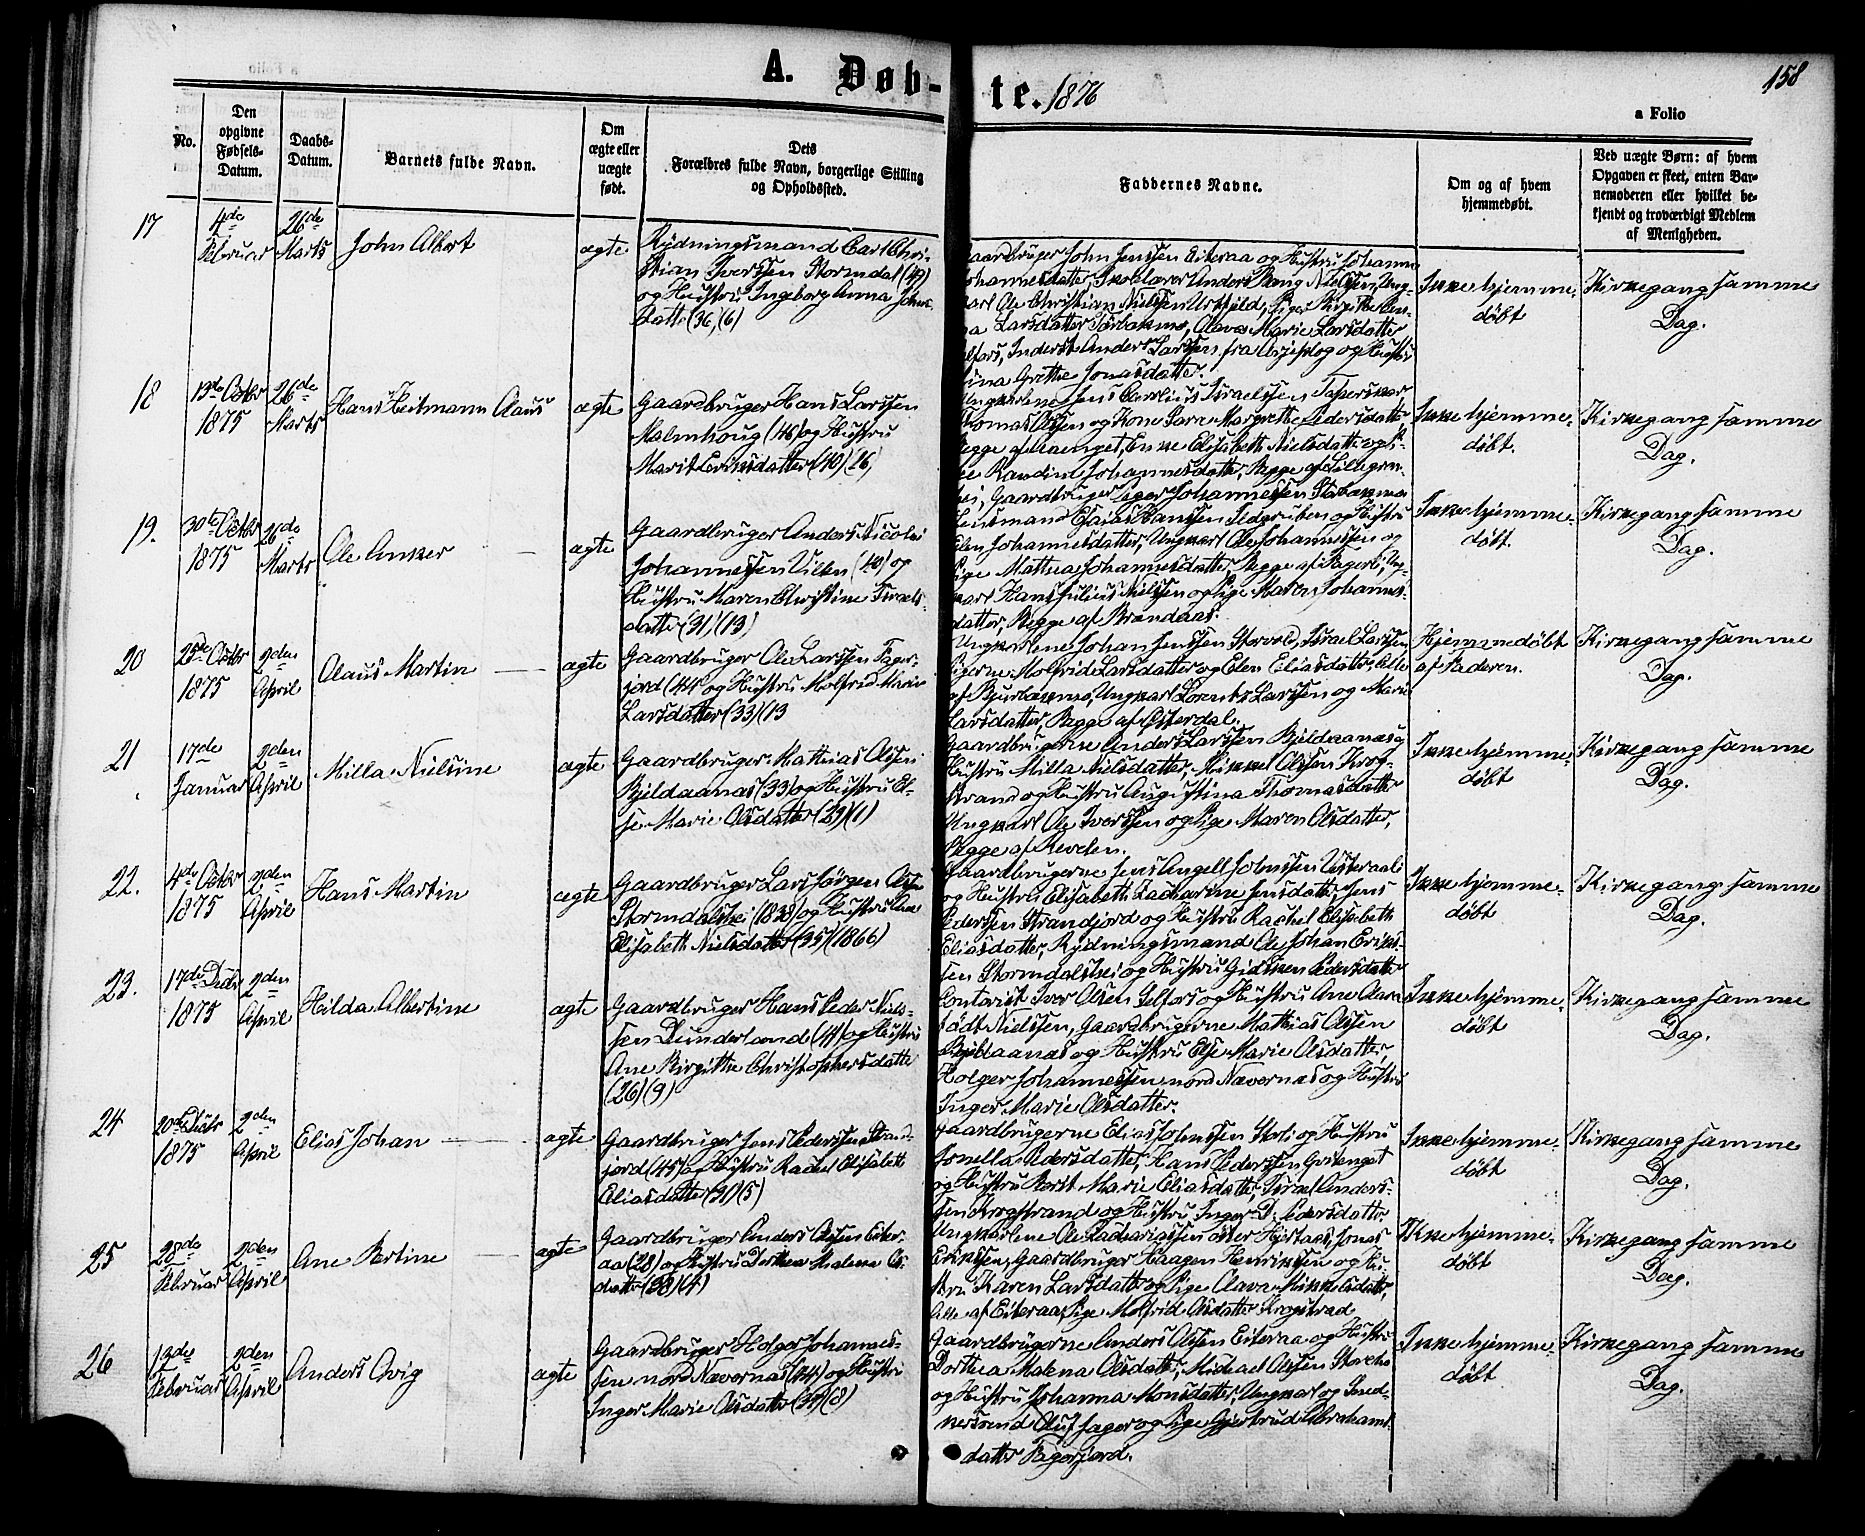 A. Døb-te. 1876
158
a Folio
No.
Den opgivne Fødsels-Datum.
Daabs-Datum.
Barnets fulde Navn.
Om ægte eller uægte født.
Dets Forældres fulde Navn, borgerlige Stilling og Opholdssted.
Faddernes Navne.
Om og af hvem hjemmedøbt.
Ved uægte Børn: af hvem Opgaven er skeet, enten Barnemoderen eller hvilket bekjendt og troværdigt Medlem af Menigheden.
17
4de Februar
26de Marts
John Albert
ægte
Rydningsmand Carl Chri-
stian Iverssen Stormdal (49)
og Hustru Ingeborg Anna Johns-
datter (36) (6)
Gaardbruger John Jenssen Eiteraa og Hustru Johanna
Johannesdatter, Skolelærer Anders Nielssen, Ung-
karl Ole Christian Nielssen Urfjeld, Pige Birgitte
Larsdatter, Olava Marie Larsdatter
Selfors, Inderst Anders Larssen fra Arjeplog og Hustru
Stina Grethe Jonasdatter.
Ikke hjemme-
døbt
Kirkegang samme
Dag.
18
13de Octbr 1875
26de Marts
Hans Heitmann Claus
ægte
Gaardbruger Hans Larssen
Malmhoug (46) og Hustru
Marit Larsdatter (40) (26)
Ungkarlene Jens Carolius Israelssen
Thomas Olssen og Kone Sara Margrethe Pedersdatter,
Begge af Enke Elisabeth Nielsdatter og Pi-
ge Randine Johannesdatter, Begge af
Gaardbruger Johannessen Storbækmo
Ikke hjemme-
døbt.
Kirkegang samme
Dag.
19.
30te Octbr 1875
26de Marts
Ole Anker
ægte
Gaardbruger Anders Nicolai
Johannessen Uillen (40) og
Hustru Maren Christine Israels-
datter (31) (13)
Leilsmand Esaias Hanssen Sedgruben og Hustru
Elen Johannesdatter, Ungkarl Ole Johannessen og
Pige Mathea Johannesdatter, Begge af Fagerli, Ung-
karl Hans Julius Nielssen og Pige Maren Johannes-
datter, Begge af Brændaas.
Ikke hjemme-
døbt.
Kirkegang samme
Dag.
20
25de Octbr 1875
2den April
Olaus Martin
ægte
Gaardbruger Ole Larssen Fager-
jord (44) og Hustru Molfrid Marie
Larsdatter (33) (13
Ungkarlene Johan Jenssen Storvold, Israel Larssen,
Pigerne Molfride Larsdatter og Elen Eliasdatter, Alle
af Bjurbækmo, Ungkarl Lorents Larssen og Marie
Larsdatter, Begge af Østerdal.
Hjemmedøbt
af Faderen.
Kirkegang samme
Dag.
21
17de Januar
2den April
Milla Nielsine
ægte
Gaardbruger Mathias Olssen
Bjeldaanæs (33) og Hustru El-
se Marie Olsdatter (29) (1)
Gaardbrugerne Anders Larssen Bjeldaanæs og
Hustru Milla Nielsdatter, Mikkel Olssen Krog-
strand og Hustru Augustina Thomasdatter
Ungkarl Ole Iverssen og Pige Maren Olsdatter,
Begge af Revelen.
Ikke hjemme-
døbt
Kirkegang samme
Dag.
22.
4de Octbr 1875
2den April
Hans Martin
ægte
Gaardbruger Lars Jørgen Olssen
Stormdalshei (1838) og Hustru Ane
Elisabeth Nielsdatter (35) (1866)
Gaardbrugerne Jens Angell Johnssen Vesteraali
og Hustru Elisabeth Zacharine Jensdatter, Jens
Pederssen Strandjord og Hustru Rachel Elisabeth
Eliasdatter, Rydningsmand Ole Johan Eriks-
sen Stormdalshei og Hustru Gidsken Pedersdatter
Ikke hjemme-
døbt
Kirkegang samme
Dag.
23.
17de Decbr 1875
2den April
Hilda Albertine
ægte
Gaardbruger Hans Peder Niels-
sen Dunderland (41) og Hustru
Ane Birgitte Christophersdatter
(26) (9)
Contorist Iver Olssen Selfors og Hustru Ane Clara
født Nielssen, Gaardbrugerne Mathias Olssen
Bjeldaanæs og Hustru Else Marie Olsdatter,
Holger Johannessen nord Nævernæs og Hustru
Inger Marie Olsdatter.
Ikke hjemme-
døbt
Kirkegang samme
Dag.
24
20de Decbr 1875
2den April
Elias Johan
ægte
Gaardbruger Jens Pederssen Strand-
jord (45) og Hustru Rachel Elisabeth
Eliasdatter (31) (5)
Gaardbrugerne Elias Johnssen Storli og Hustru
Jonella Pedersdatter, Hans Pederssen Gvitenget
og Hustru Berit Marie Eliasdatter, Israel Anders-
sen Krogstrand og Hustru Inger D. Pedersdatter.
Ikke hjemme-
døbt
Kirkegang samme
Dag.
25
28de Februar
2den April
Ane Bertine
ægte
Gaardbruger Anders Olssen Eiter-
aa (28) og Hustru Dorthea Malena Ols-
datter (38) (4)
Ungkarlene Ole Zachariassen øster Hjertaas, Jonas
Erikssen, Gaardbruger Haagen Henrikssen og Hu-
stru Karen Larsdatter og Pige Olava Mikkelsdatter,
Alle af Eiteraa, Pige Molfrid Olsdatter Krogstrad
Ikke hjemme-
døbt
Kirkegang samme
Dag.
26
13de Februar
2den April
Anders Qvig
ægte
Gaardbruger Holger Johannes-
sen nord Nævernæs (44) og Hustru
Inger Marie Olsdatter (34) (8)
Gaardbrugerne Anders Olssen Eiteraa og Hustru
Dorthea Malena Olsdatter, Michael Olssen Storeho
og Hustru Johanna Monsdatter, Ungkarl og Sned-
kersvend Oluf Jager og Pige Gjertrud Abrahams-
datter Fagerjord.
Ikke hjemme-
døbt
Kirkegang samme
Dag.